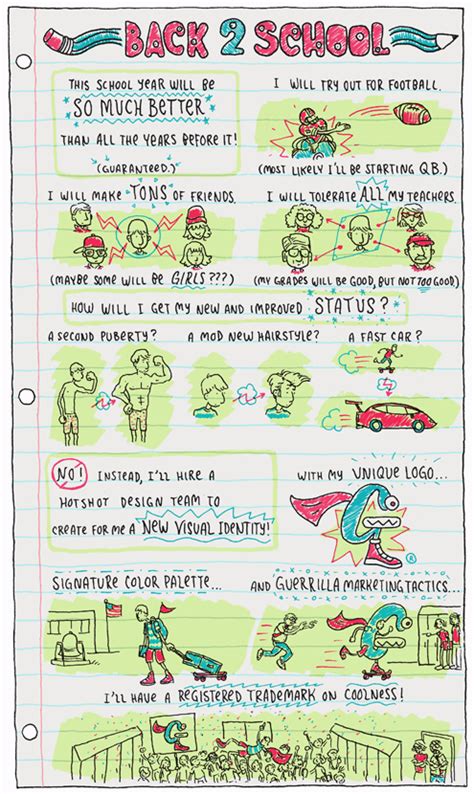 BACK 2 SCHOOL
THIS SCHOOL YEAR WILL BE
SO MUCH BETTER
THAN ALL THE YEARS BEFORE IT!
(GUARANTEED.)
I WILL TRY OUT FOR FOOTBALL.
(MOST LIKELY I'LL BE STARTING Q.B.)
I WILL MAKE TONS OF FRIENDS.
(MAYBE SOME WILL BE GIRLS???)
I WILL TOLERATE ALL MY TEACHERS.
(MY GRADES WILL BE GOOD, BUT NOT TOO GOOD.)
HOW WILL I GET MY NEW AND IMPROVED STATUS?
A SECOND PUBERTY?
A MOD NEW HAIRSTYLE?
A FAST CAR?
NO! INSTEAD, I'LL HIRE A
HOTSHOT DESIGN TEAM TO
CREATE FOR ME A NEW VISUAL IDENTITY!
WITH MY UNIQUE LOGO...
®
SIGNATURE COLOR PALETTE...
AND GUERRILLA MARKETING TACTICS...
I'LL HAVE A REGISTERED TRADEMARK ON COOLNESS!